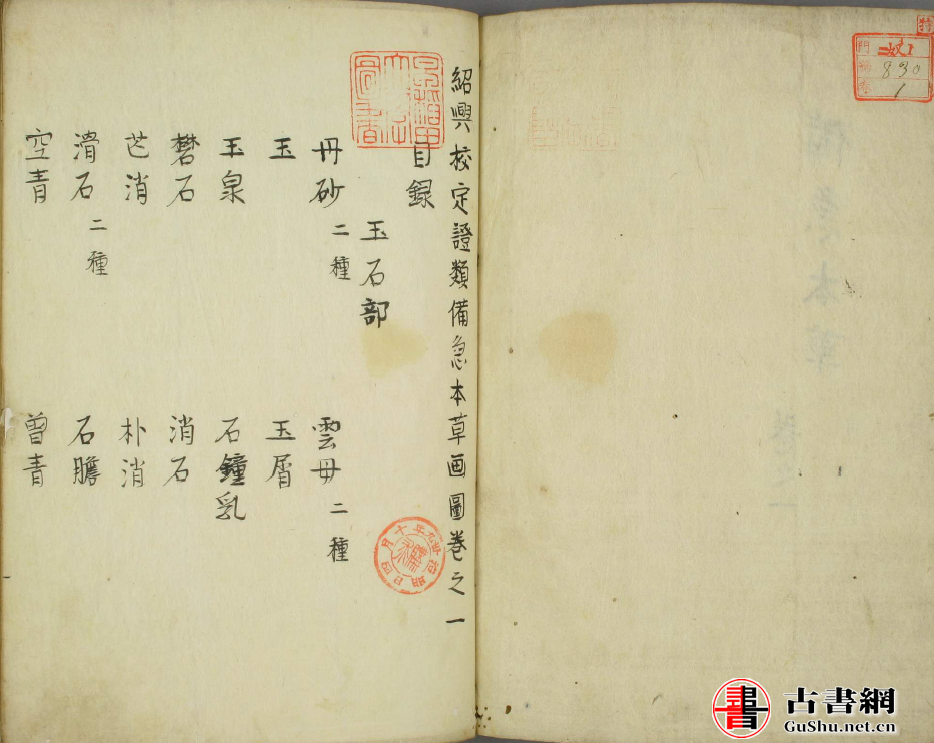 特
門
號 830
卷 1
紹興校定證類備急本草画圖卷之一
早稻田大學圖書
目録
玉石部
丹砂二種 雲母二種
玉 玉屑
玉泉 石鐘乳
礬石 消石
芒消 朴消
滑石二種 石膽
空青 曾青
書 古書網
GuShu.net.cn